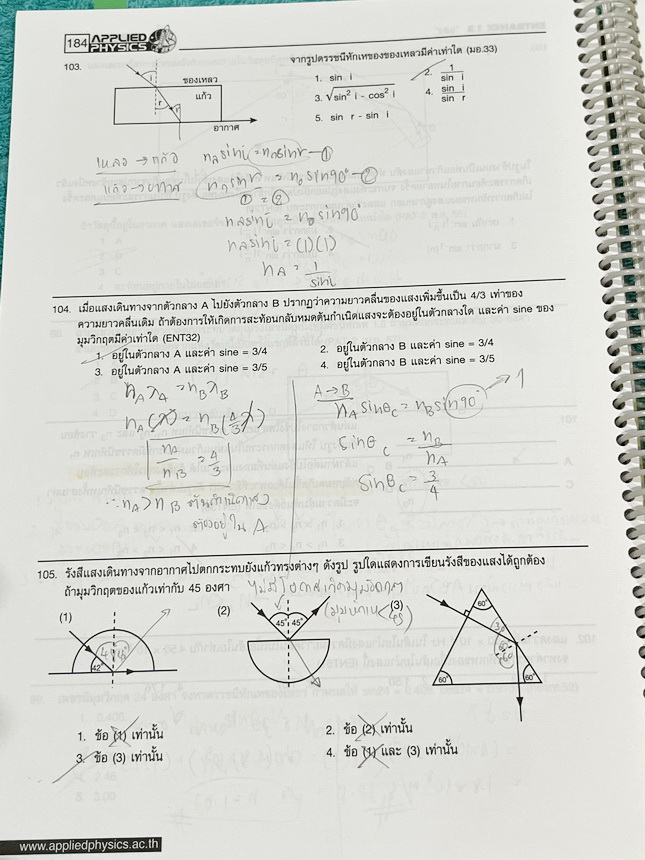 184 APPLIED PHYSICS
103.
จากรูปดรรชนีหักเหของของเหลวมีค่าเท่าใด (มอ.33)
ของเหลว
แก้ว
อากาศ
i
r
r
1. sin i
2. 1/sin i
3. √sin² i - cos² i
4. sin i/sin r
5. sin r - sin i
เหลว → แก้ว nₐsini = nₐsinr — ①
แก้ว → อากาศ nₐsinr = n₀sin90° — ②
① = ②
nₐsini = n₀sin90°
nₐsini = (1)(1)
nₐ = 1/sini
104. เมื่อแสงเดินทางจากตัวกลาง A ไปยังตัวกลาง B ปรากฏว่าความยาวคลื่นของแสงเพิ่มขึ้นเป็น 4/3 เท่าของ
ความยาวคลื่นเดิม ถ้าต้องการให้เกิดการสะท้อนกลับหมดต้นกำเนิดแสงจะต้องอยู่ในตัวกลางใด และค่า sine ของ
มุมวิกฤตมีค่าเท่าใด (ENT32)
1. อยู่ในตัวกลาง A และค่า sine = 3/4
2. อยู่ในตัวกลาง B และค่า sine = 3/4
3. อยู่ในตัวกลาง A และค่า sine = 3/5
4. อยู่ในตัวกลาง B และค่า sine = 3/5
n_A λ_A = n_B λ_B
n_A (λ) = n_B (4/3 λ)
n_A/n_B = 4/3
∴ n_A > n_B ต้นกำเนิดแสง
ต้องอยู่ใน A
A → B
n_A sinθc = n_B sin90° → 1
sinθc = n_B/n_A
sinθc = 3/4
105. รังสีแสงเดินทางจากอากาศไปตกกระทบยังแก้วทรงต่างๆ ดังรูป รูปใดแสดงการเขียนรังสีของแสงได้ถูกต้อง
ถ้ามุมวิกฤตของแก้วเท่ากับ 45 องศา
ไม่มีโอกาสเกิดมุมวิกฤต
(1)
42°
(2)
45° 45°
(3)
60°
60°
60°
1. ข้อ (1) เท่านั้น
2. ข้อ (2) เท่านั้น
3. ข้อ (3) เท่านั้น
4. ข้อ (1) และ (3) เท่านั้น
www.appliedphysics.ac.th